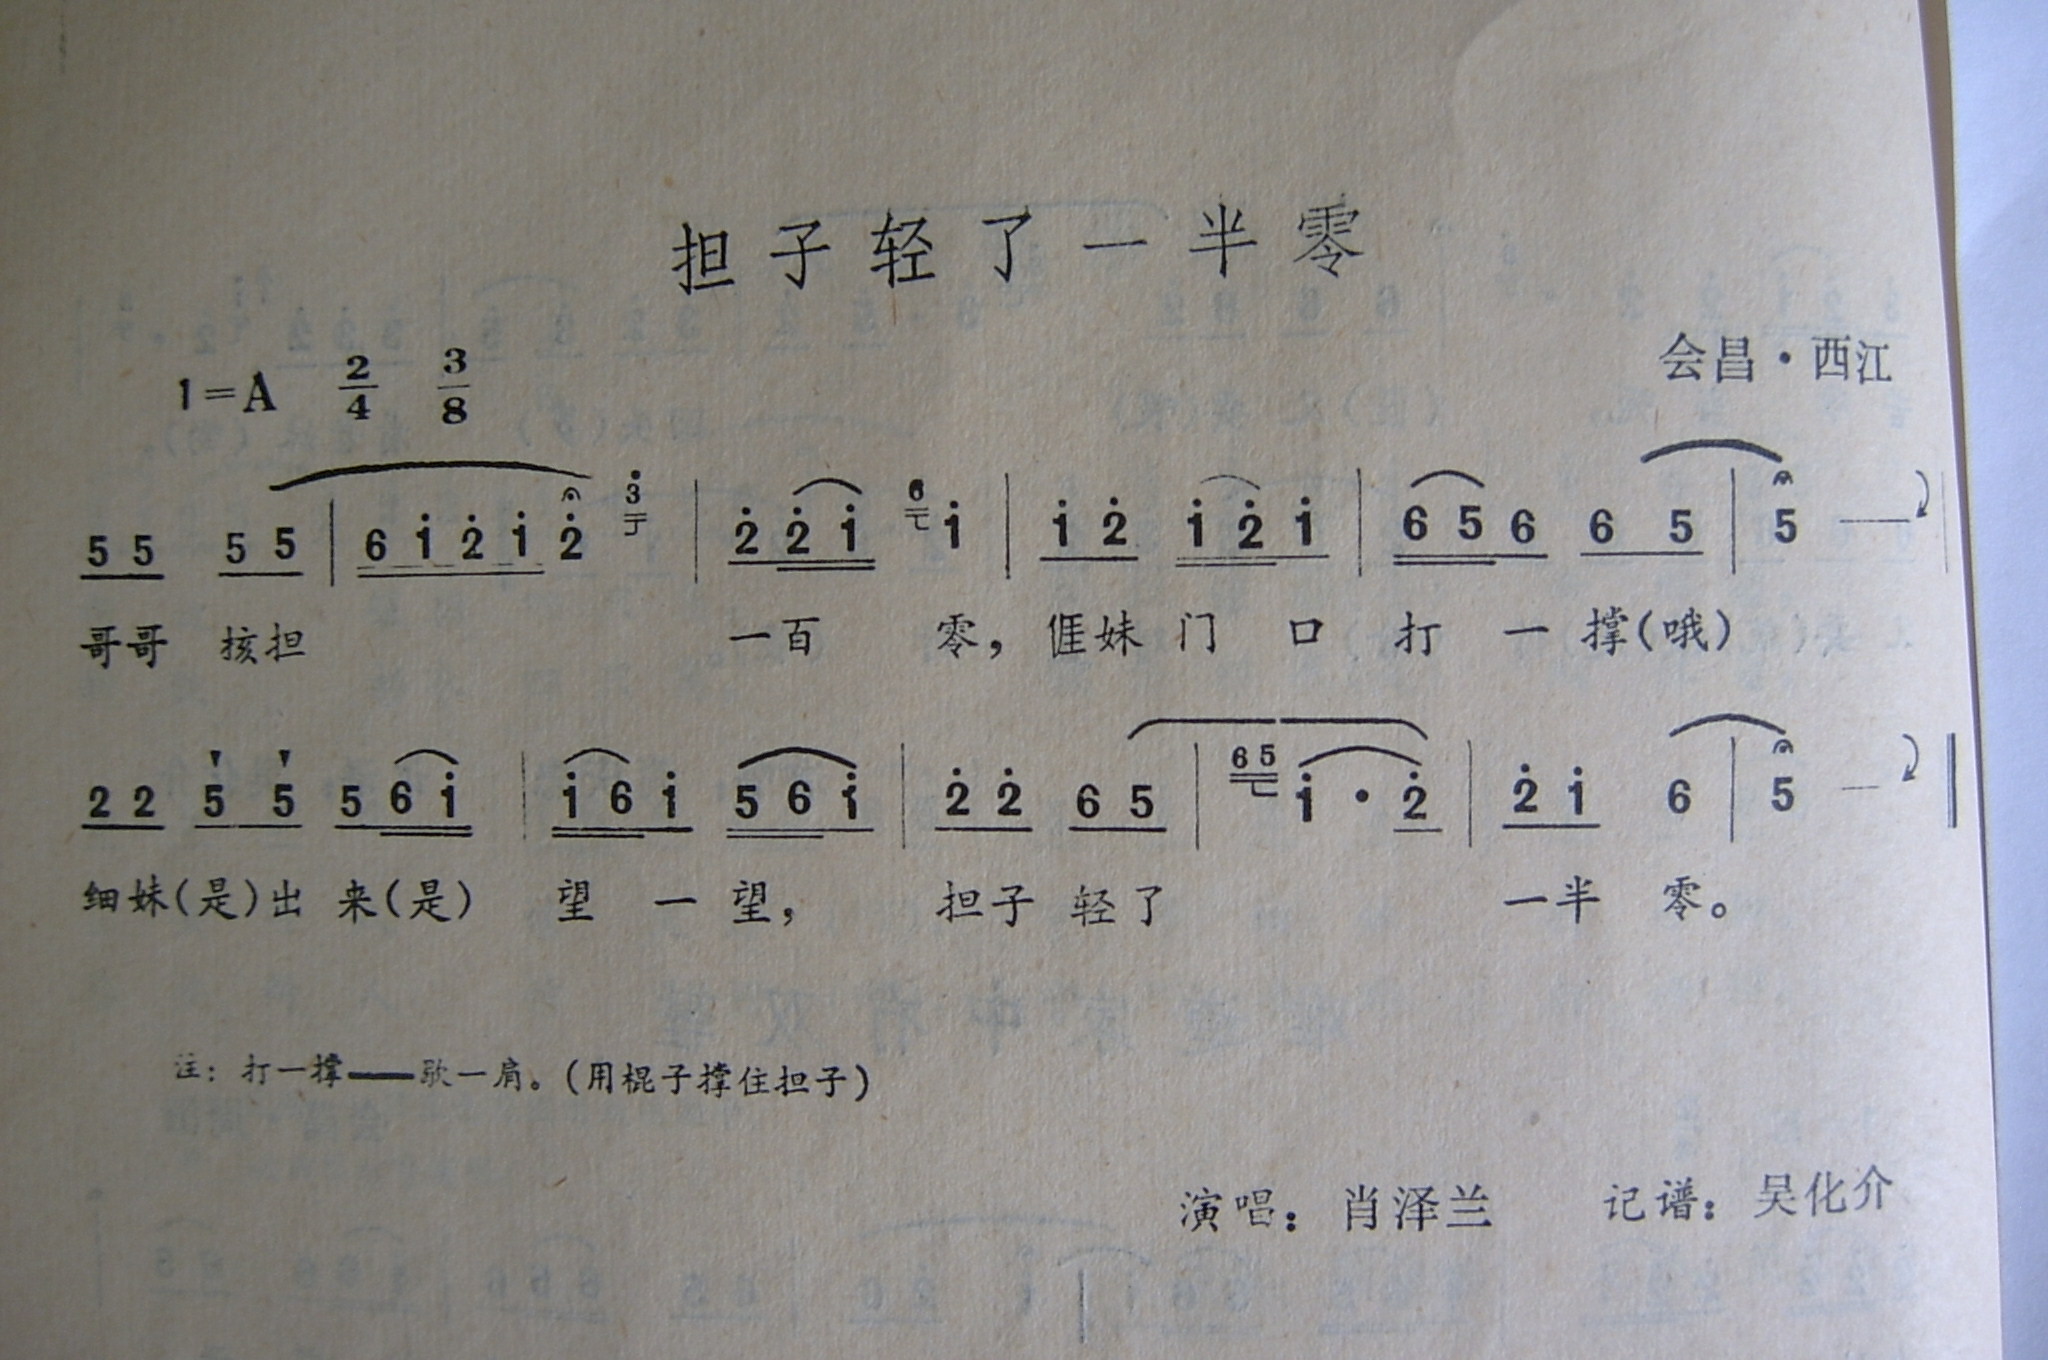 担子轻了一半零
会昌·西江
1=A 2/4 3/8
5 5 5 5 | 6 i̇ 2̇ i̇ 2̇ 3̇ | 2̇ 2̇ i̇ 6 i̇ | i̇ 2̇ i̇ 2̇ i̇ | 6 5 6 6 5 | 5 —
哥哥 核担 一百 零，偓妹 门 口 打 一 撑（哦）
2 2 5 5 5 6 i̇ | i̇ 6 i̇ 5 6 i̇ | 2̇ 2̇ 6 5 | 6 5 i̇ · 2̇ | 2̇ i̇ 6 | 5 —
细妹（是）出 来（是） 望 一 望， 担子 轻了 一半 零。
注：打一撑——歇一肩。（用棍子撑住担子）
演唱：肖泽兰 记谱：吴化介